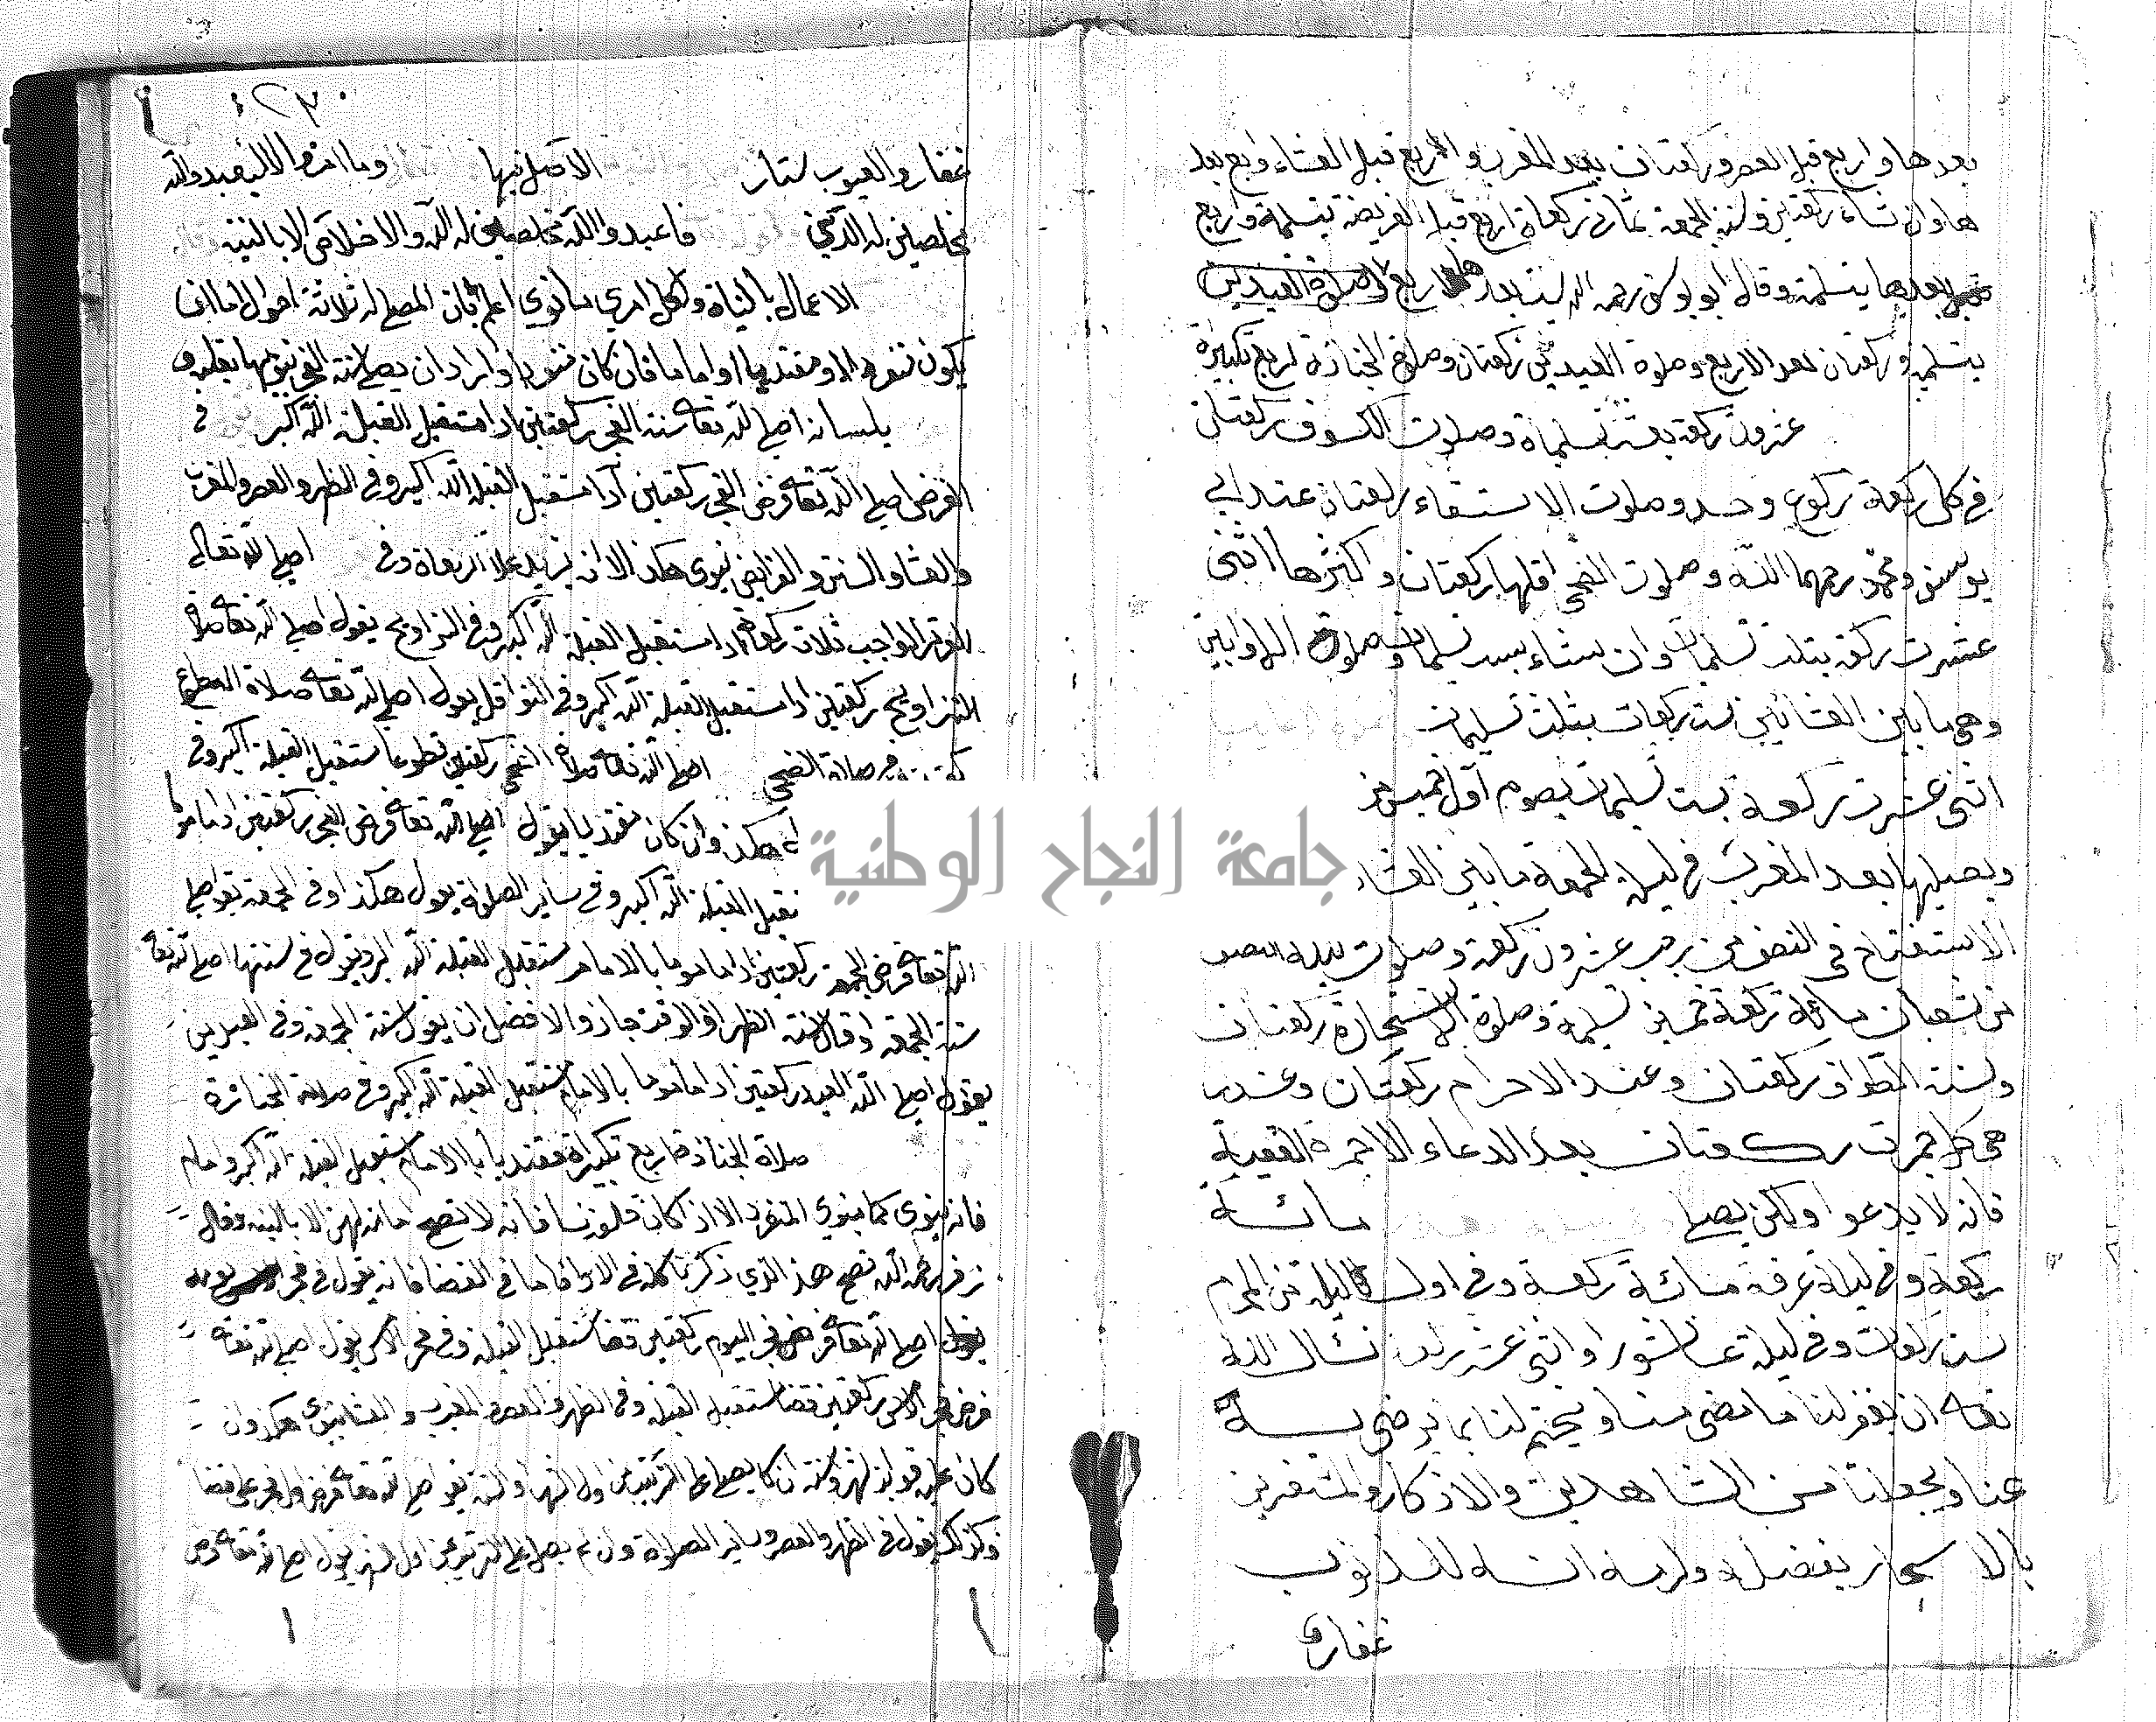 بعدها واربع قبل العصر وركعتان بعد المغرب والاربع قبل العشاء واربع بعد
ها وان شاء ركعتين وسنة الجمعة ثماني ركعاة اربع قبل الفريضة بتسلمة واربع
بعدها بتسلمة وقال ابو يوسف رحمه الله ست بعدها اربع صلوة العيدين
بتسلمة وركعتان بعد الاربع وصلوة العيدين ركعتان وصلوة الجنازة اربع تكبيرة
عشرون ركعة بعشر تسلماة وصلوت الكسوف ركعتان
في كل ركعة ركوع وحد وصلوت الاستسقاء ركعتان عند ابي
يوسف ومحمد رحمهما الله وصلوت الضحى اقلها ركعتان واكثرها اثنى
عشرت ركعة بتلث تسلمات وان يشاء بست تسلمات وصلوة الاوابين
وهي ما بين العشائين ست ركعات بثلث تسليمات
اثنى عشرت ركعة بست تسليمات يصوم اول خميس من
ويصليها بعد المغرب في ليلة الجمعة ما بين العشاء
الاستفتاح في النصف من رجب عشرون ركعة وصلوت ليلة النصف
من شعبان مائة ركعة خمسين تسليمة وصلوة الاستخارة ركعتان
وسنة الطواف ركعتان وعند الاحرام ركعتان وعند
كل جمرت ركعتان بعد الدعاء الا جمرة العقبة
فانه لا يدعوا ولكن يصلي مائة
ركعة وفي ليلة عرفة مائة ركعة وفي اول ليلة من المحرم
ست ركعات وفي ليلة عاشورا واثنى عشر ركعة نسال الله
تعالى ان يغفر لنا ما مضى منا ويختم لنا بما يرضى به
عنا ويجعلنا من الشاهدين والاذكار والمستغفرين
بالاسحار بفضله وكرمه انه للذنوب
غفار و
٢٣٠
غفار والعيوب ستار الاصل فيها وما امروا الا ليعبدوا الله
مخلصين له الدين فاعبدوا الله مخلصين له الدين والاخلاص الا بالنية
الاعمال بالنياة ولكل امرئ ما نوي اعلم بان المصلي له ثلاثة احوال اما ان
يكون منفردا او مقتديا او اماما فان كان منفردا واراد ان يصلي سنة الفجر ينويها بقلبه و
بلسانه اصلي لله تعالى سنة الفجر ركعتين ادا مستقبل القبلة الله اكبر في
الفرض اصلي لله تعالى فرض الفجر ركعتين ادا مستقبل القبلة الله اكبر وفي الظهر والعصر والمغرب
والعشا والسنن والفرايض ينوي هكذا الا ان يزيد عدد الركعاة وفي اصلي لله تعالى
الوتر الواجب ثلاث ركعاة ادا مستقبل القبلة الله اكبر وفي التراويح يقول اصلي لله تعالى صلاة
التراويح ركعتين ادا مستقبل القبلة الله اكبر وفي النوافل يقول اصلي لله تعالى صلاة التطوع
صلاة الضحى اصلي لله تعالى صلاة الضحى ركعتين تطوعا مستقبل القبلة اكبر وفي
هكذا وان كان مقتديا يقول اصلي لله تعالى فرض الفجر ركعتين ادا ماموما
مستقبل القبلة الله اكبر وفي ساير الصلوة يقول هكذا وفي الجمعة يقول اصلي
لله تعالى فرض الجمعة ركعتين ادا ماموما بالامام مستقبل القبلة الله اكبر ويقول في سنتها اصلي لله تعالى
سنة الجمعة او قال سنة الظهر او الوقت جاز والافضل ان يقول سنة الجمعة وفي العيدين
يقول اصلي لله العيد ركعتين ادا ماموما بالامام مستقبل القبلة الله اكبر وفي صلاة الجنازة
صلاة الجنازة اربع تكبيراة مقتديا بالامام مستقبل القبلة الله اكبر وامام
فانه ينوي كما ينوي المنفرد الا اذ كان خلفه نسا فانه لا تصح امامة لهن الا بالنية وقال
زفر رحمه الله تصح هذا الذي ذكرنا كله في الادا فاما في القضا فانه يقول في فجر
يقول اصلي لله تعالى فرض فجر اليوم ركعتين قضا مستقبل القبلة وفي فجر الامس يقول اصلي لله تعالى
فرض فجر الامس ركعتين قضا مستقبل القبلة وفي الظهر والعصر والمغرب والعشا ينوي هكذا وان
كان عليه فوايت شهر وسنة ان كا يصلي على الترتيب من اول الشهر او السنة يقول اصلي لله تعالى فرض اول فجر علي قضا
وكذلك يقول في الظهر والعصر وساير الصلواة وان لم يصل على الترتيب من اول شهر يقول اصلي لله تعالى فرض
جامعة النجاح الوطنية